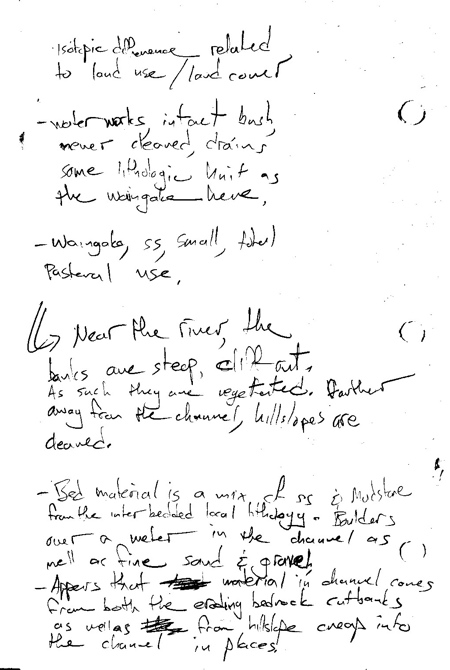 Isotopic difference related
to land use / land cover
- water works, intact bush,
never cleared, drains
same lithologic Unit as
the Waingake here.
- Waingake, ss, small, total
Pasteral use.
Near the river, the
banks are steep, cliff out.
As such they are vegetated. Farther
away from the channel, hillslopes are
cleared.
- Bed material is a mix of ss & Mudstone
from the interbedded local lithology. Boulders
over a meter in the channel as
well as fine sand & gravel
- Appers that material in channel comes
from both the eroding bedrock cutbanks
as well as from hillslope creep into
the channel in places